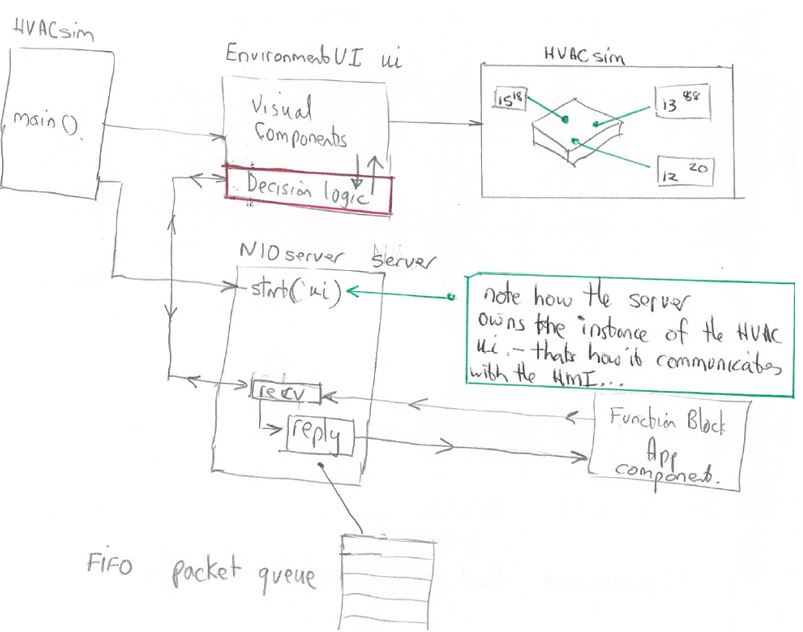 HVACsim
main().
EnvironmentUI ui
Visual
Components
Decision logic
HVACsim
15 18
13 88
12 20
NIOserver server
start(ui)
recv
reply
note how the server
owns the instance of the HVAC
ui. - thats how it communicates
with the HMI...
Function Block
App
component.
FIFO packet queue